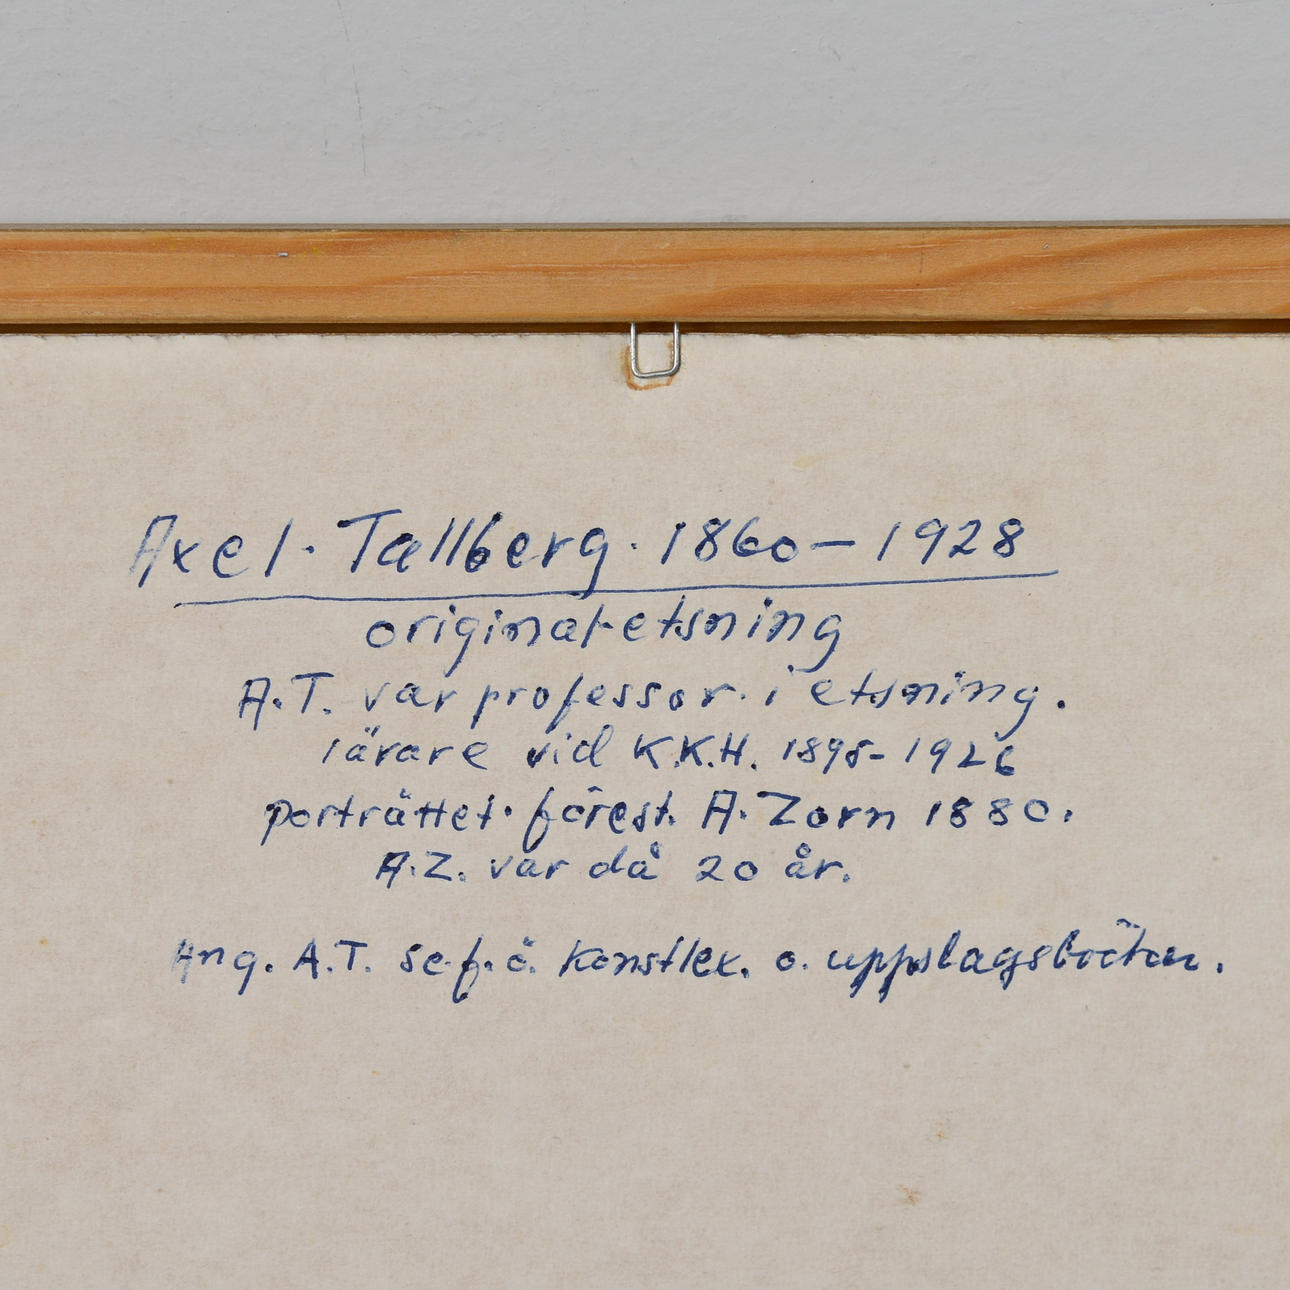 Axel. Tallberg. 1860 – 1928
original-etsning
A.T. var professor. i etsning.
lärare vid K.K.H. 1895-1926
porträttet. förest. A. Zorn 1880.
A.Z. var då 20 år.
Ang. A.T. se.f.ö. Konstlex. o. uppslagsböcker.